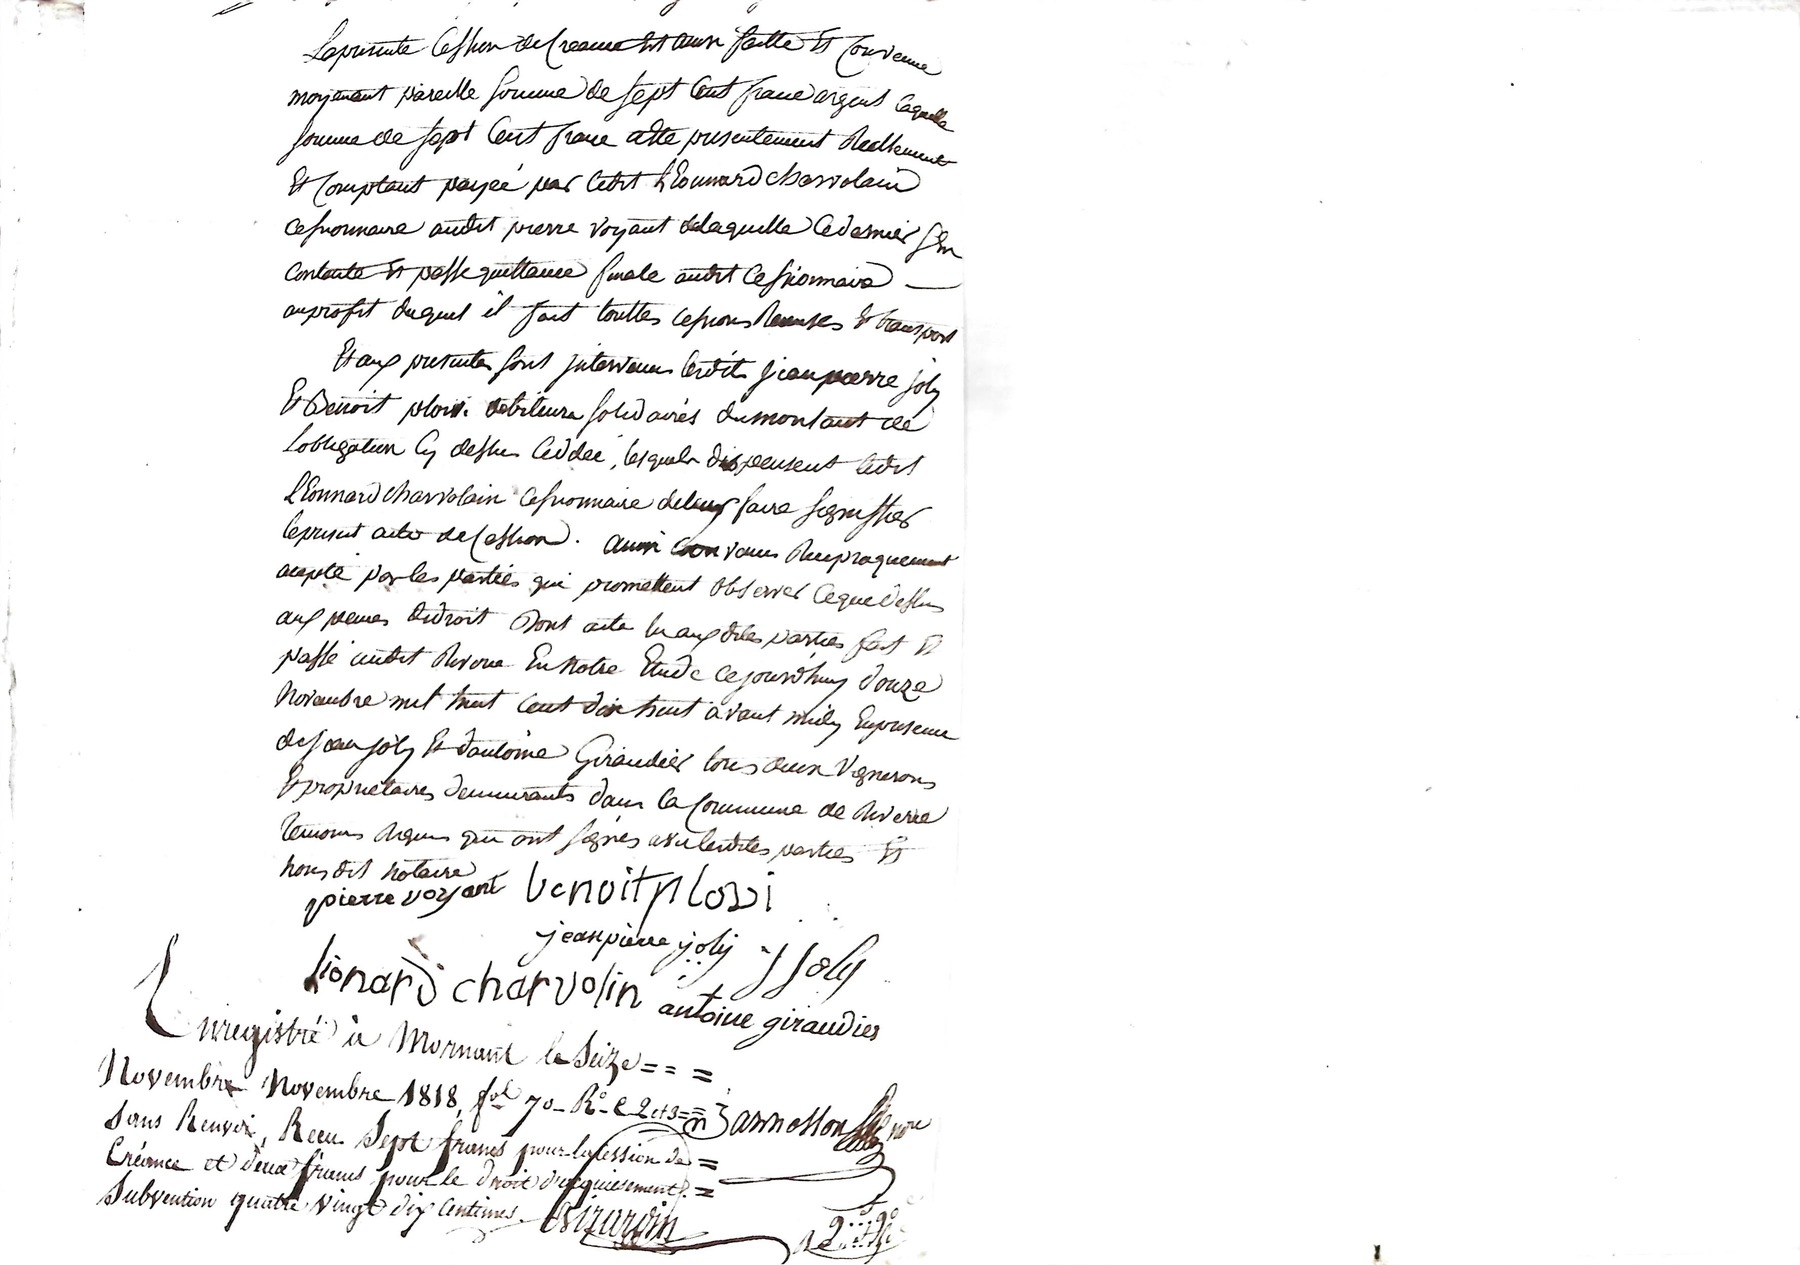 La presente Cession de Creance Est ainsi faitte Et Convenue
moyenant pareille somme de sept Cent franc argent laquelle
somme de sept Cent franc a Ete presentement Reellement
Et Comptant payeé par Ledit LEonnard charvolain
cessionnaire audit pierre voyant de laquelle Ce dernier S'En
contente Et passe quittance finale audit Cessionnaire
au profit duquel il fait touttes cessions Remises Et transport
Et aux presentes sont jntervenus lesdits jean pierre joly
Et Benoit plovi debiteurs solidairés du montant de
Lobligation Cy dessus Ceddeé, lesquels dispensent Ledit
LEonnard charvolain Cessionnaire de leurs faire signiffier
le present acte de Cession. ainsi convenu Reciproquement
accepté par les partiés qui promettent observer Ce que dessus
aux peines de droit Dont acte lu aux dites parties fait Et
passé audit Riverie En Notre Etude ce jourd'huy douze
Novembre mil huit Cent dix huit avant midy En presence
de jean joly Et d'antoine Giraudier tous deux Vignerons
Et proprietaires demeurants dans la Commune de Riverie
temoins Requis qui ont signés avec lesdites parties Et
nous dit Notaire
pierre voyant benoit plovi
jean pierre joly j joly
lionard charvolin antoine giraudier
Enregistré à Mornant le Seize = = =
Novembre Novembre 1818, fol 70 Ro C 2 et 3 = =
Sans Renvoi, Reçu Sept francs pour la Cession de =
Créance et deux francs pour le droit d'acquiesement. =
Subvention quatre vingt dix centimes.